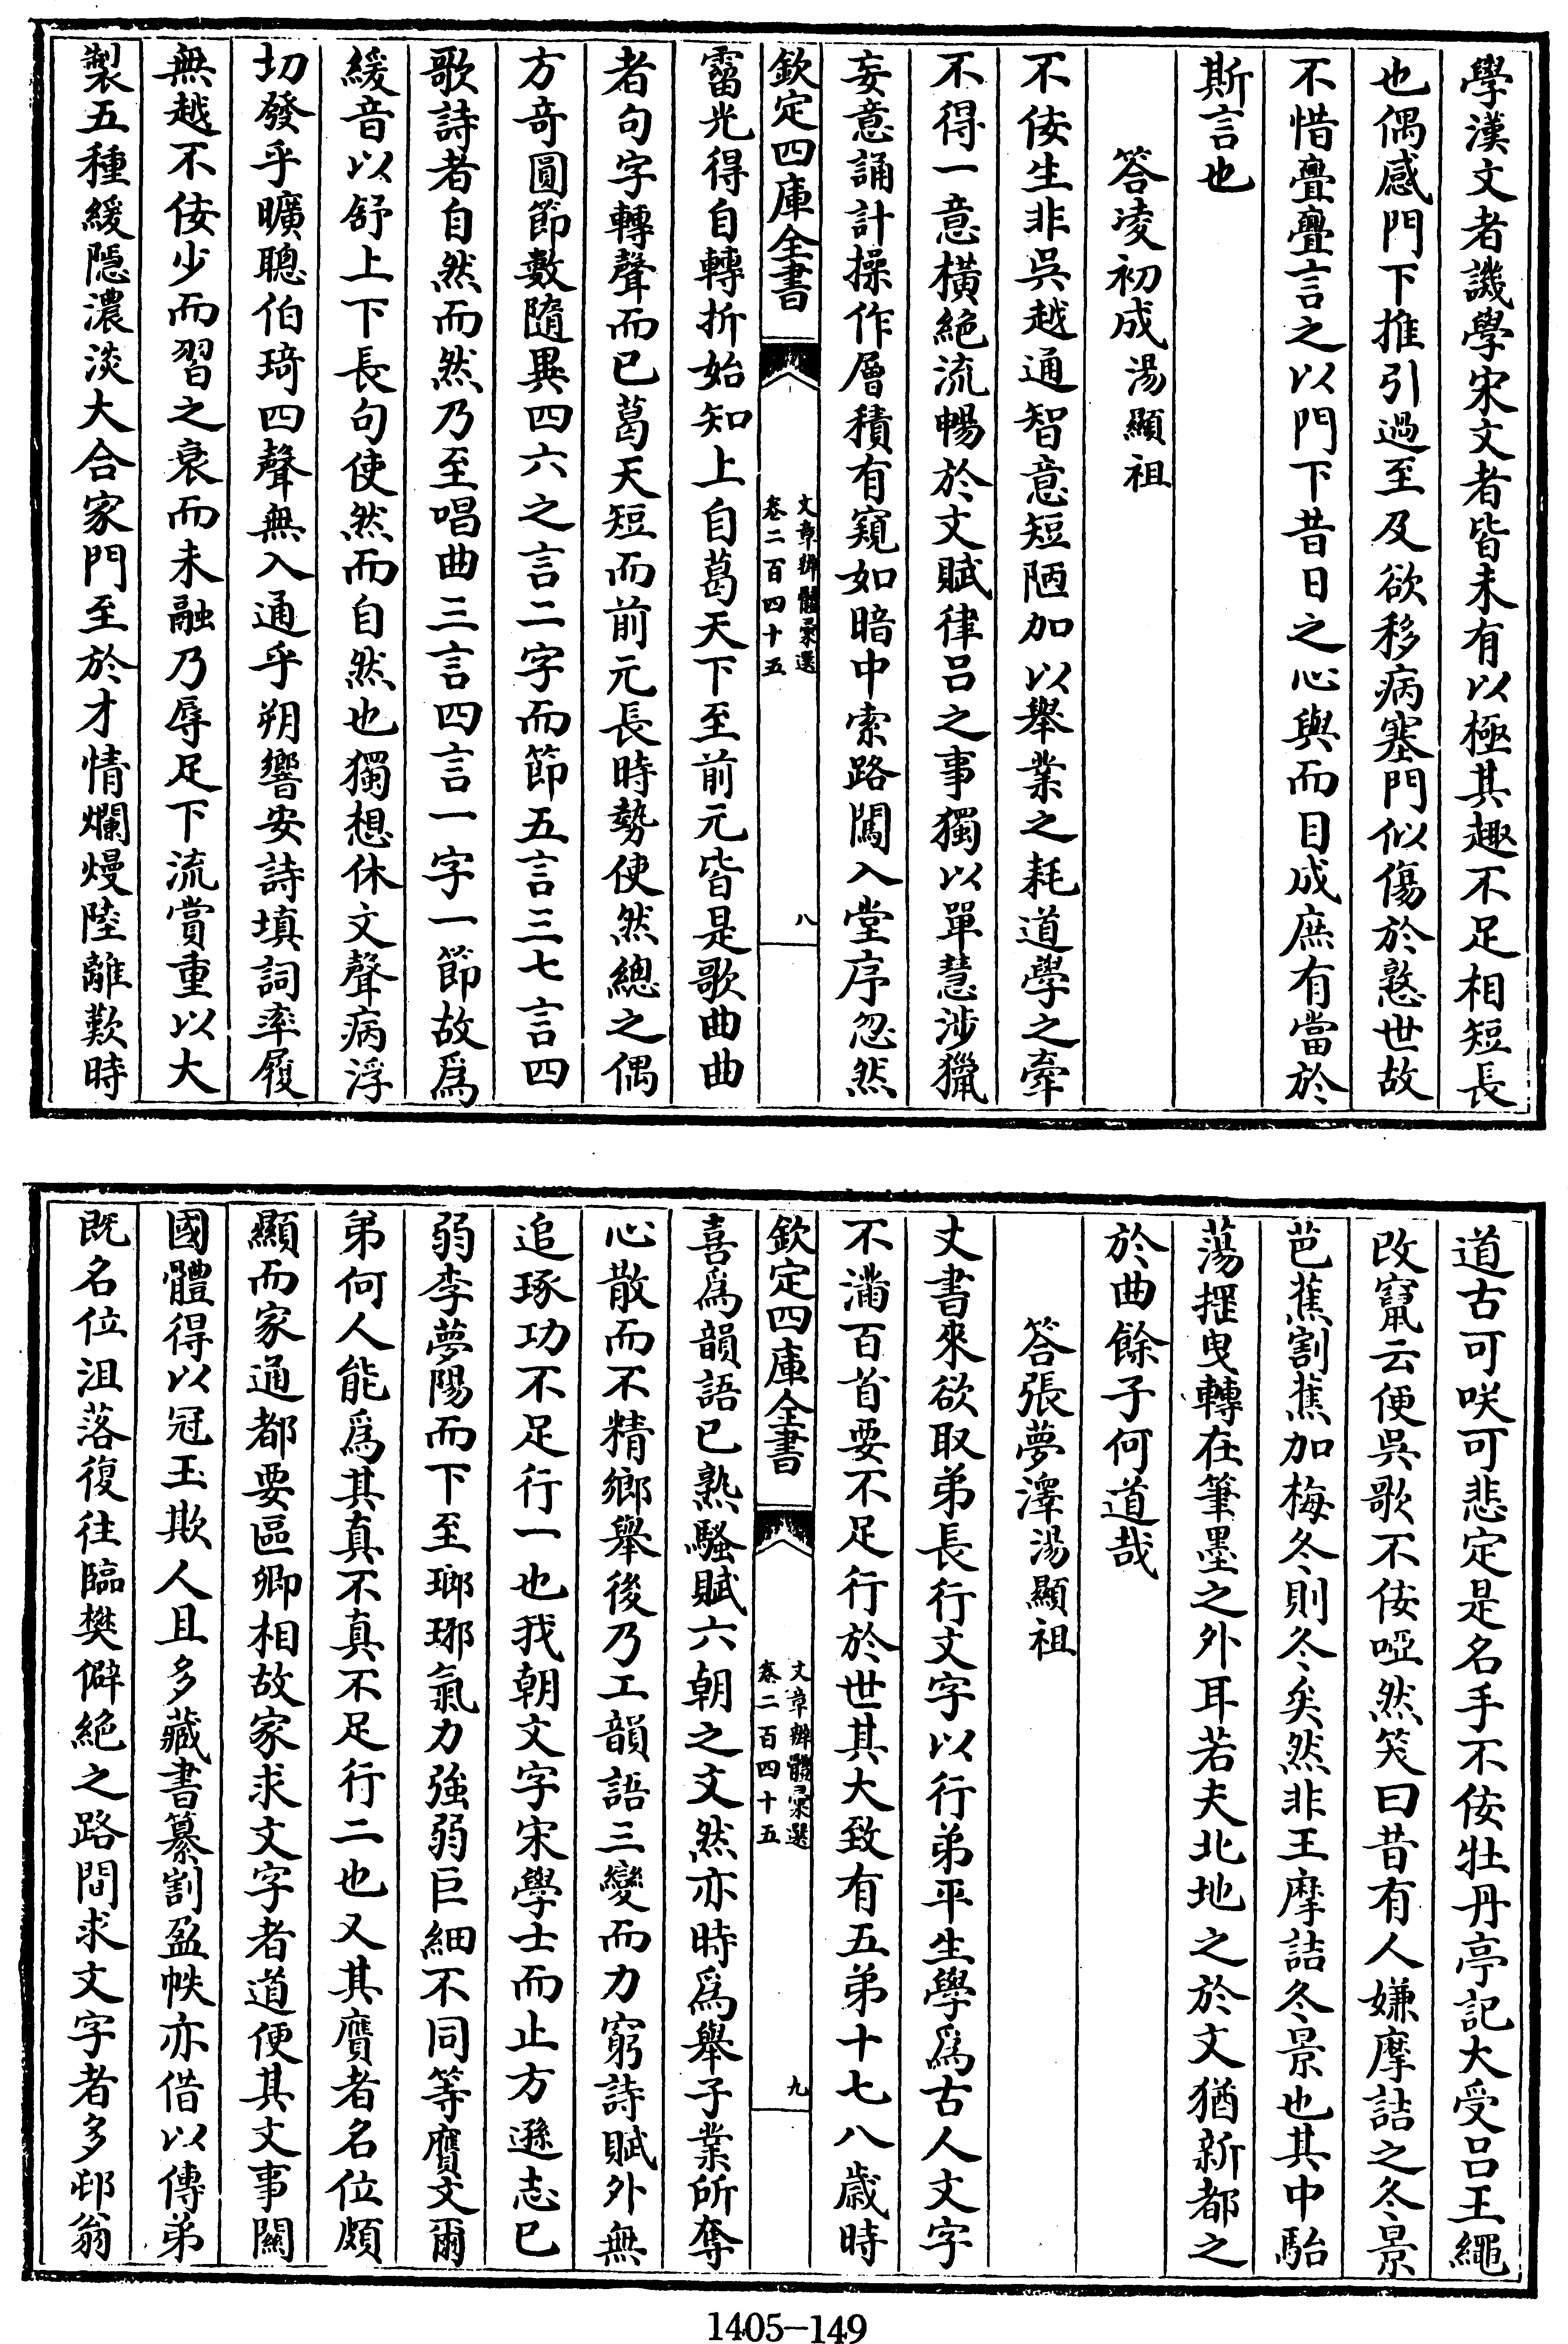 學漢文者譏學宋文者皆未有以極其趣不足相短長
也偶感門下推引過至及欲移病塞門似傷於憝世故
不惜亹亹言之以門下昔日之心與而目成庶有當於
斯言也
答凌初成湯顯祖
不佞生非吳越通智意短陋加以舉業之耗道學之牽
不得一意橫絶流暢於文賦律呂之事獨以單慧涉獵
妄意誦計操作層積有窺如暗中索路闖入堂序忽然
欽定四庫全書
文章辨體彙選
卷二百四十五
八
霤光得自轉折始知上自葛天下至前元皆是歌曲曲
者句字轉聲而已葛天短而前元長時勢使然總之偶
方竒圓節數隨異四六之言二字而節五言三七言四
歌詩者自然而然乃至唱曲三言四言一字一節故爲
緩音以舒上下長句使然而自然也獨想休文聲病浮
切發乎曠聰伯琦四聲無入通乎朔響安詩填詞率履
無越不佞少而習之衰而未融乃辱足下流賞重以大
製五種緩隠濃淡大合家門至於才情爛熳陸離歎時
道古可咲可悲定是名手不佞牡丹亭記大受呂玉繩
改竄云便吳歌不佞啞然笑曰昔有人嫌摩詰之冬景
芭蕉割蕉加梅冬則冬矣然非王摩詰冬景也其中駘
蕩搖曳轉在筆墨之外耳若夫北地之於文猶新都之
於曲餘子何道哉
答張夢澤湯顯祖
丈書來欲取弟長行文字以行弟平生學爲古人文字
不滿百首要不足行於世其大致有五弟十七八歳時
欽定四庫全書
文章辨體彙選
卷二百四十五
九
喜爲韻語已熟騷賦六朝之文然亦時爲舉子業所奪
心散而不精鄉舉後乃工韻語三變而力窮詩賦外無
追琢功不足行一也我朝文字宋學士而止方遜志已
弱李夢陽而下至瑯琊氣力強弱巨細不同等贋文爾
弟何人能爲其真不真不足行二也又其贋者名位頗
顯而家通都要區卿相故家求文字者道便其文事關
國體得以冠玉欺人且多藏書纂割盈帙亦借以傳弟
既名位沮落復往臨樊僻絶之路間求文字者多邨翁
1405-149